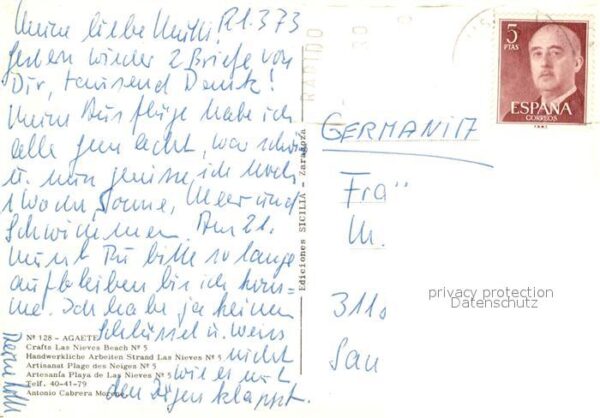 Meine liebe Mutti! 21.3.73
gestern wieder 2 Briefe von
Dir, tausend Dank!
Meine Ausflüge habe ich
alle gemacht, war schön
u. nun genieße ich noch
1 Woche Sonne, Meer und
Schwimmen. Am 21.
mußt Du bitte so lange
aufbleiben bis ich kom-
me. Ich habe ja keinen
Schlüssel u. weiss
nicht
wie es mit
den klappt.
Nº 128 - AGAETE
Crafts Las Nieves Beach Nº 5
Handwerkliche Arbeiten Strand Las Nieves Nº 5
Artisanat Plage des Neiges Nº 5
Artesanía Playa de Las Nieves Nº 5
Telf. 40-41-79
Antonio Cabrera Moreno
Ediciones SICILIA - Zaragoza
RAPIDO
5
PTAS
ESPAÑA
CORREOS
GERMANIA
Frau
M.
311
San
privacy protection
Datenschutz